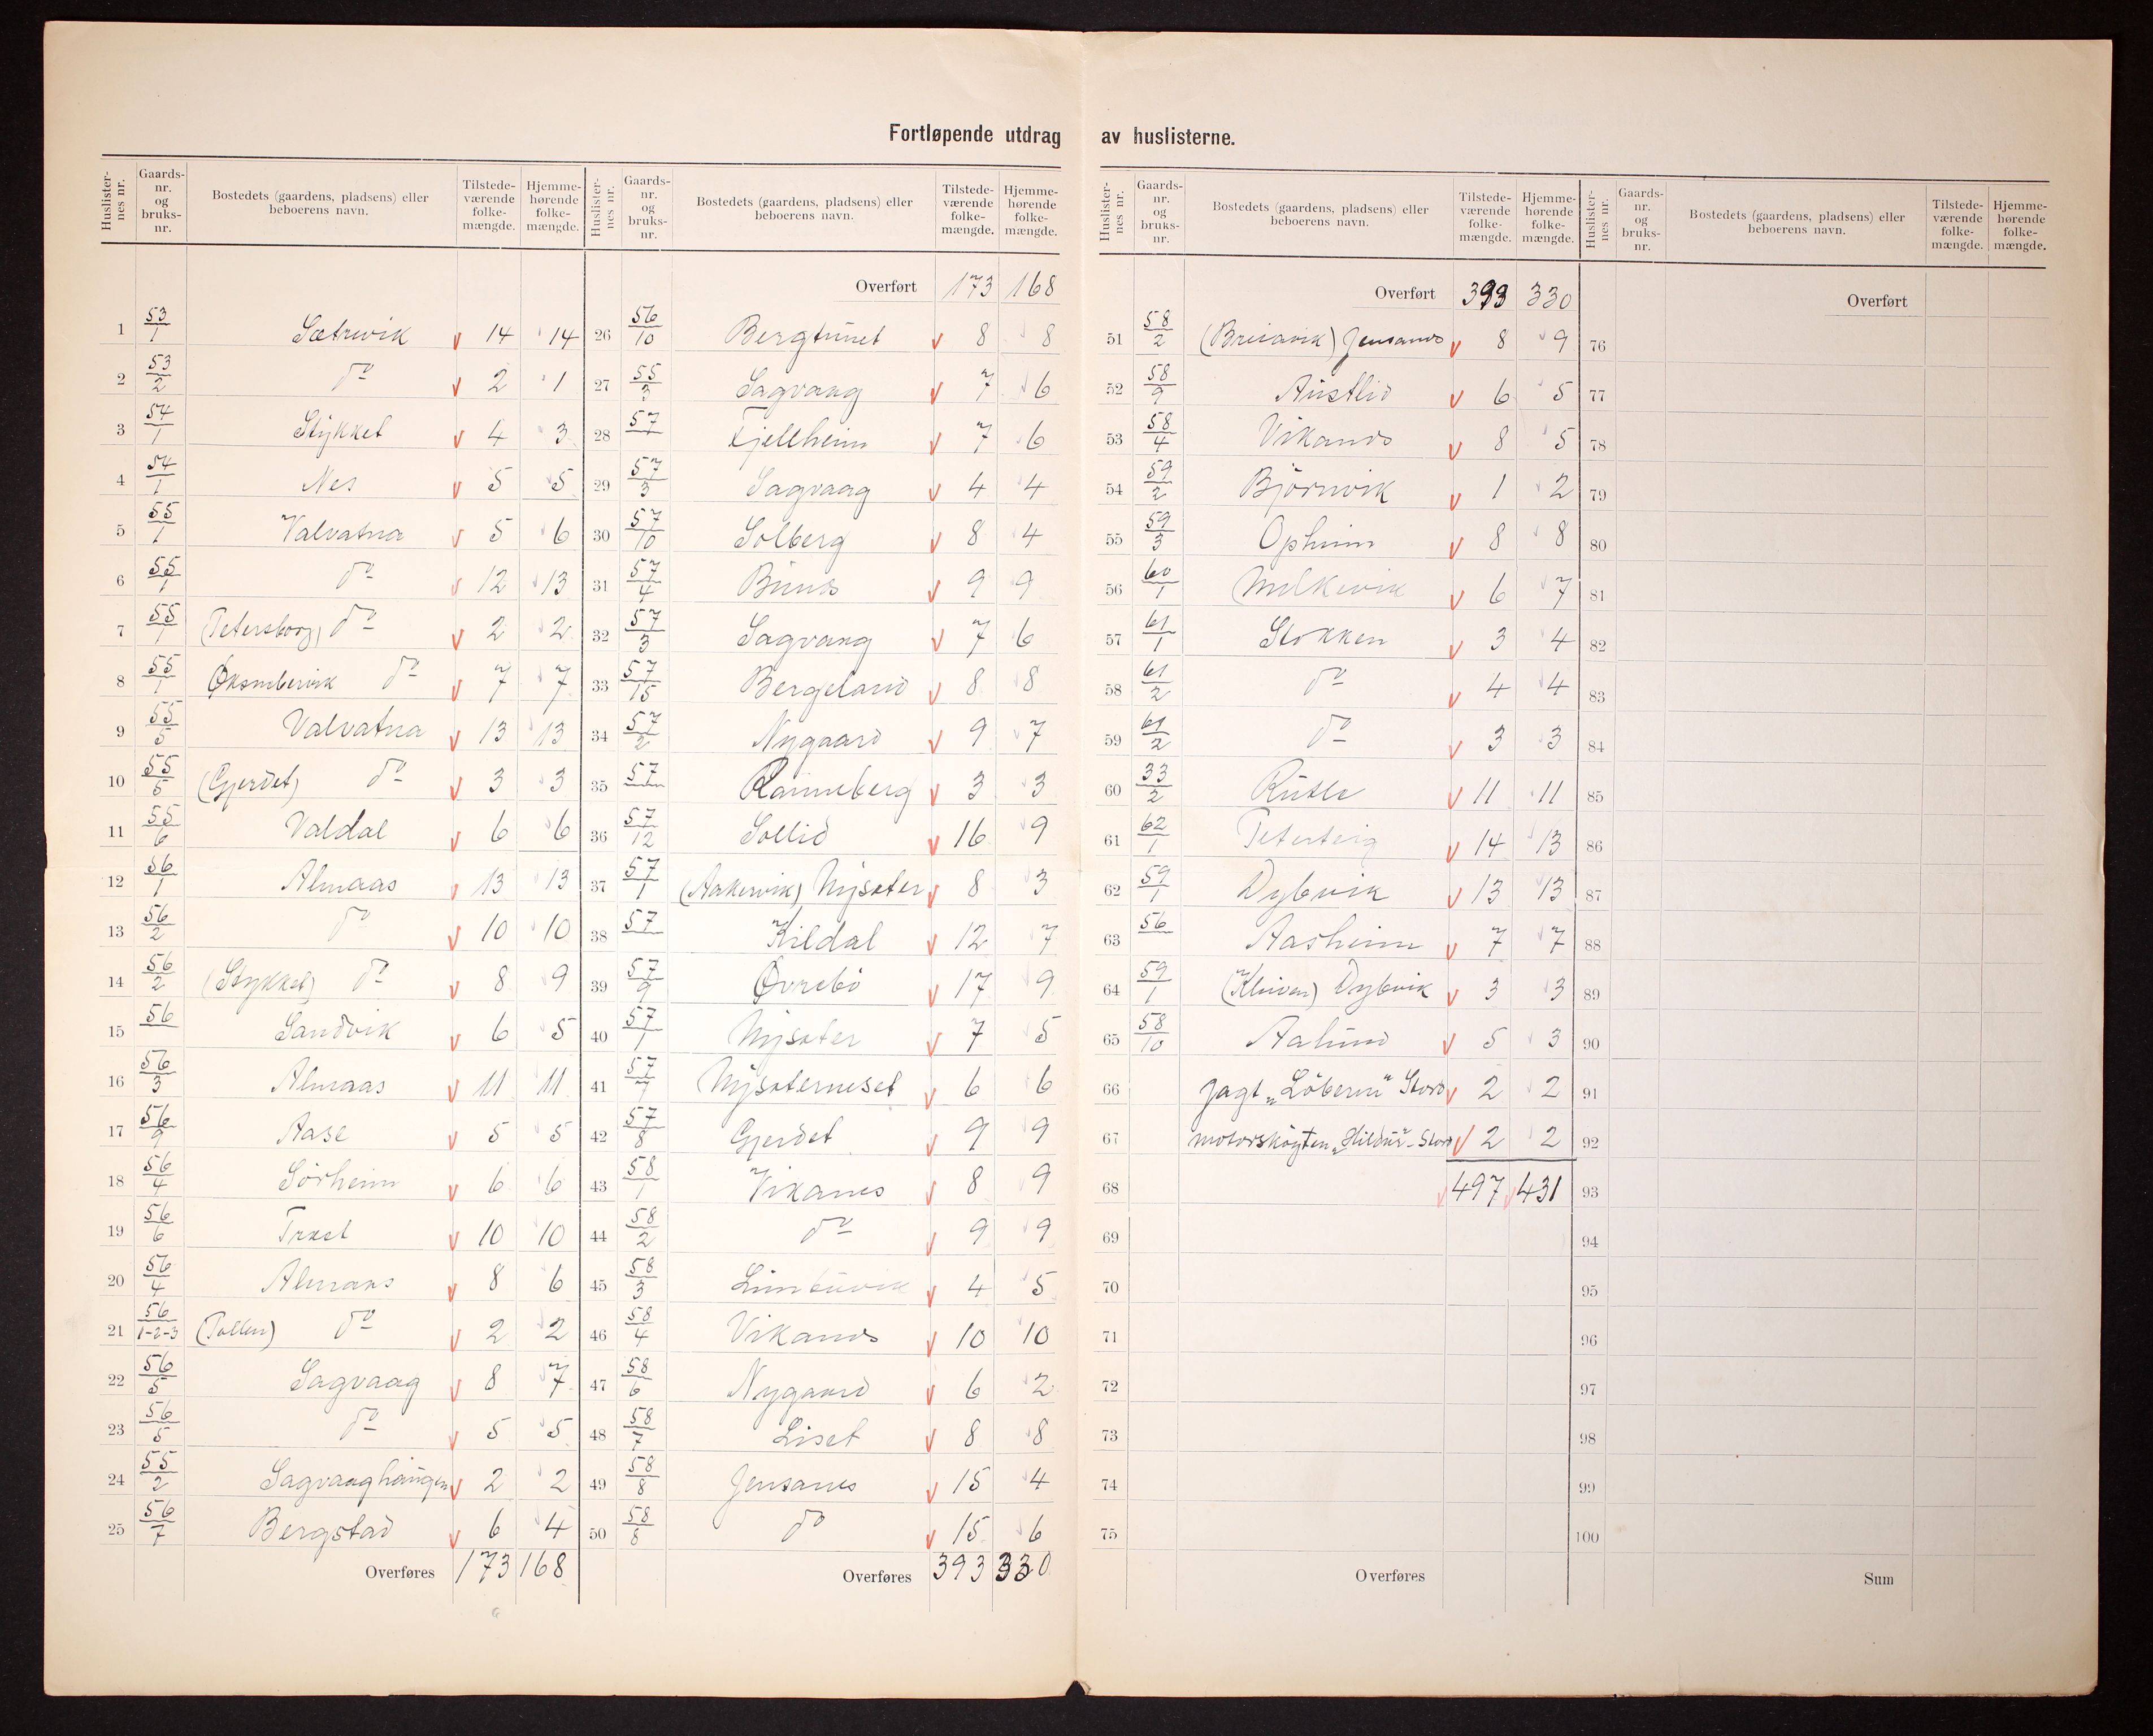 Fortløpende utdrag av huslisterne.
Huslisternes nr. Gaards-nr. og bruks-nr. Bostedets (gaardens, pladsens) eller beboerens navn. Tilstede-værende folke-mængde. Hjemme-hørende folke-mængde.
1 53/1 Sætrevik 14 14
2 53/2 do 2 1
3 54/1 Stykket 4 3
4 54/1 Nes 5 5
5 55/1 Valvatna 5 6
6 55/1 do 12 13
7 55/1 (Petersborg) do 2 2
8 55/1 do 7 7
9 55/5 Valvatna 13 13
10 55/5 (Gjerdet) do 3 3
11 55/6 Valdal 6 6
12 56/1 Almaas 13 13
13 56/2 do 10 10
14 56/2 (Stykket) do 8 9
15 56 Sandvik 6 5
16 56/3 Almaas 11 11
17 56/9 Aase 5 5
18 56/4 Sörheim 6 6
19 56/6 Træet 10 10
20 56/4 Almaas 8 6
21 56/1-2-3 (Pollen) do 2 2
22 56/5 Sagvaag 8 7
23 56/5 do 5 5
24 55/2 Sagvaaghaugen 2 2
25 56/7 Bergstad 6 4
Overføres 173 168
Huslisternes nr. Gaards-nr. og bruks-nr. Bostedets (gaardens, pladsens) eller beboerens navn. Tilstede-værende folke-mængde. Hjemme-hørende folke-mængde.
Overført 173 168
26 56/10 Bergtunet 8 8
27 55/3 Sagvaag 7 6
28 57 Fjellheim 7 6
29 57/3 Sagvaag 4 4
30 57/10 Solberg 8 4
31 57/4 9 9
32 57/3 Sagvaag 7 6
33 57/15 Bergeland 8 8
34 57/2 Nygaard 9 7
35 57 Ranneberg 3 3
36 57/12 Sollid 16 9
37 57/1 (Aakervik) Nysæter 8 3
38 57 Kildal 12 7
39 57/9 Øvrebö 17 9
40 57/1 Nysæter 7 5
41 57/7 Nysæterneset 6 6
42 57/8 Gjerdet 9 9
43 58/1 Vikanes 8 9
44 58/2 do 9 9
45 58/3 4 5
46 58/4 Vikanes 10 10
47 58/6 Nygaard 6 2
48 58/7 Liset 8 8
49 58/8 Jensanes 15 4
50 58/8 do 15 6
Overføres 393 330
Huslisternes nr. Gaards-nr. og bruks-nr. Bostedets (gaardens, pladsens) eller beboerens navn. Tilstede-værende folke-mængde. Hjemme-hørende folke-mængde.
Overført 393 330
51 58/2 (Breiavik) Jensanes 8 9
52 58/9 Austlid 6 5
53 58/4 Vikanes 8 5
54 59/2 Björnvik 1 2
55 59/3 Opheim 8 8
56 60/1 Melkevik 6 7
57 61/1 Stokken 3 4
58 61/2 do 4 4
59 61/2 do 3 3
60 33/2 Rutle 11 11
61 62/1 Peterteig 14 13
62 59/1 Dybvik 13 13
63 56 Aasheim 7 7
64 59/1 (Kleiven) Dybvik 3 3
65 58/10 Aalund 5 3
66 Jagt „Löberen" Stord 2 2
67 motorskøyten „Hildur" Stord 2 2
68 497 431
69
70
71
72
73
74
75
Overføres
Huslisternes nr. Gaards-nr. og bruks-nr. Bostedets (gaardens, pladsens) eller beboerens navn. Tilstede-værende folke-mængde. Hjemme-hørende folke-mængde.
Overført
76
77
78
79
80
81
82
83
84
85
86
87
88
89
90
91
92
93
94
95
96
97
98
99
100
Sum